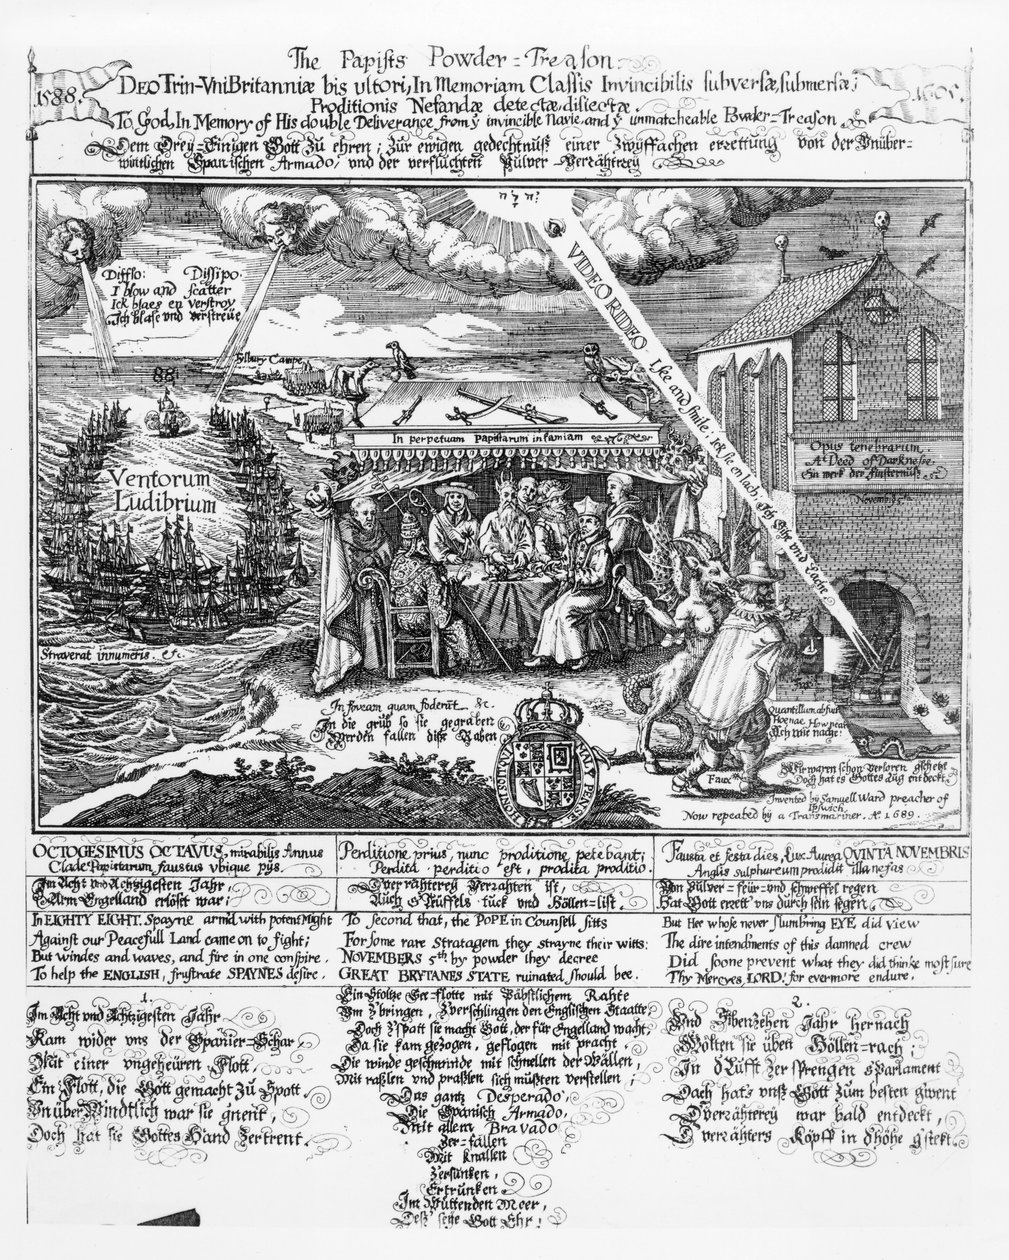 The Papists Powder=Treason.
1588.
1605.
DEO Trin-Vni Britanniæ bis ultori, In Memoriam Classis Invincibilis subversæ submersæ;
Proditionis Nefandæ detectæ disiectæ.
To God, In Memory of His double Deliverance from yͤ invincible Navie, and yͤ unmatcheable Powder-Treason.
Dem Drey=Einigen Gott zu ehren; Zur ewigen gedechtnüß einer Zwyffachen erzettung von der Vnüber=
wintlichen Spanischen Armado, vnd der verfluchten Pulver=Verzähterey
יהוה
Difflo: Dissipo.
I blow and scatter
Ick blaes en verstroy
Ich blase vnd verstreue
VIDEO RIDEO
I see and smile;
Tilbury Campe
88
Ventorum
Ludibrium
In perpetuam Papistarum infamiam
Opus tenebrarum.
A Deed of Darknesse.
Ein werk der finsternüß
Straverat innumeris. &c.
In foveam quam foderūt &c.
In die grüb so sie gegraben
Werden fallen disse Raben
HONI SOIT QVI MAL Y PENSE
Faux
How near
Ich wie nache!
Wir waren schon verloren
Doch hat es Gottes Aug entdeckt.
Invented by Samuell Ward preacher of
Ipswich.
Now repeated by a Transmariner. Aͦ. 1689.
OCTOGESIMUS OCTAVUS, mirabilis Annus
Clade Papistarum faustus ubique pijs.
Im Acht vnd Achzigesten Jahr,
Warm Engelland erlöst war;
In EIGHTY EIGHT, Spayne arm'd with potent Might
Against our Peacefull Land came on to fight;
But windes and waves, and fire in one conspire.
To help the ENGLISH, frustrate SPAYNES desire.
Perditione prius, nunc proditione petebant;
Perdita perditio est, prodita proditio.
D'verzähterey Verzahten ist,
Auch S'Teüffels tück vnd Höllen=list.
To second that, the POPE in Counsell sitts
For some rare Stratagem they strayne their witts:
NOVEMBERS 5th by powder they decree
GREAT BRYTANES STATE ruinated should bee.
Fausta et festa dies, Lux Aurea QVINTA NOVEMBRIS
Anglis sulphureum prodidit illa nefas
Von Pülver=feür=vnd schweffel regen
Hat Gott erzett vns durch sein segen.
But Hee whose never slumbring EYE did view
The dire intendments of this damned crew
Did soone prevent what they did thinke most sure
Thy Mercyes, LORD! for evermore endure.
1.
Im Acht vnd Achtzigesten Jahr
Kam wider vns der Spanier=Schar
Mit einer vngeheüren Flott.
Ein Flott, die Gott gemacht zu Spott.
Vnüberwindtlich war sie g'nent,
Doch hat sie Gottes Hand zertrent.
Ein Stoltze See=flotte mit Päbstlichem Rahte
Vm z'bringen, z'verschlingen den Englischen Staatte;
Doch z'spatt sie macht Gott, der für Engelland wacht,
Da sie kam gezogen, geflogen mit pracht.
Die winde geschwinde mit schnellen der Wällen,
Mit raßlen vnd praßlen sich müßten verstellen;
Das gantz Desperado,
Die Spänisch Armado,
Mitt allem Bravado
Zer=fallen
Mit knallen
Zersunken,
Ertrunken
Im Wüttenden Meer,
Deß seye Gott Ehr!
2.
Vnd Sibenzehen Jahr hernach
Wolten sie üben Höllen=rach;
In d'Lufft zersprengen s'Parlament
Doch hats vnß Gott zum besten gwent
D'verzähterey war bald entdeckt,
D'verzähters Kopff in d'höhe g'stekt.